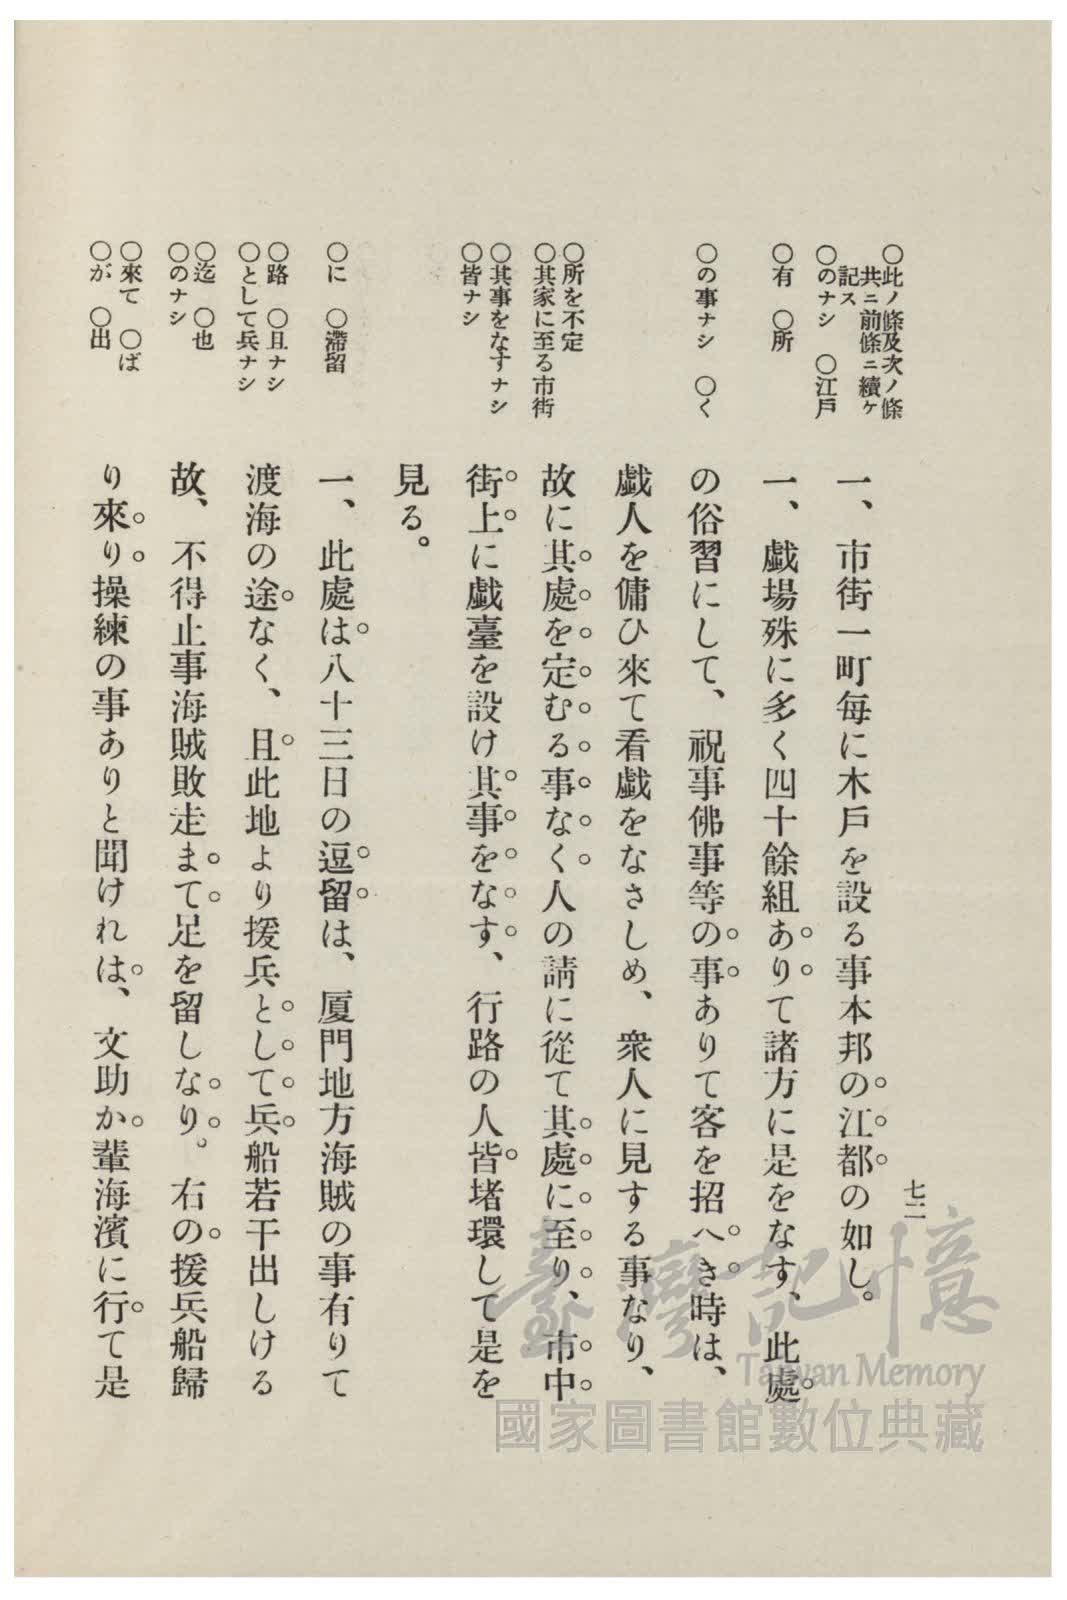 七二
一、市街一町每に木戶を設る事本邦の江都の如し。
一、戱場殊に多く四十餘組ありて諸方に是をなす、此處
の俗習にして、祝事佛事等の事ありて客を招へき時は、
戱人を傭ひ來て看戱をなさしめ、衆人に見する事なり、
故に其處を定むる事なく人の請に從て其處に至り、市中
街上に戱臺を設け其事をなす、行路の人皆堵環して是を
見る。
一、此處は八十三日の逗留は、厦門地方海賊の事有りて
渡海の途なく、且此地より援兵として兵船若干出しける
故、不得止事海賊敗走まて足を留しなり。右の援兵船歸
り來り操練の事ありと聞けれは、文助か輩海濱に行て是
〇此ノ條及次ノ條
共ニ前條ニ續ケ
記ス
〇のナシ 〇江戶
〇有 〇所
〇の事ナシ 〇く
〇所を不定
〇其家に至る市街
〇其事をなすナシ
〇皆ナシ
〇に 〇滯留
〇路 〇且ナシ
〇として兵ナシ
〇迄 〇也
〇のナシ
〇來て 〇ば
〇が 〇出
臺灣記憶
Taiwan Memory
國家圖書館數位典藏